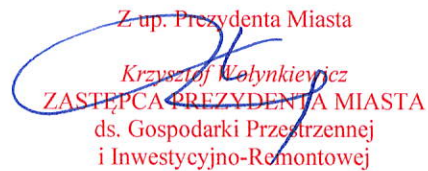 Z up. Prezydenta Miasta
Krzysztof Wołynkiewicz
ZASTĘPCA PREZYDENTA MIASTA
ds. Gospodarki Przestrzennej
i Inwestycyjno-Remontowej